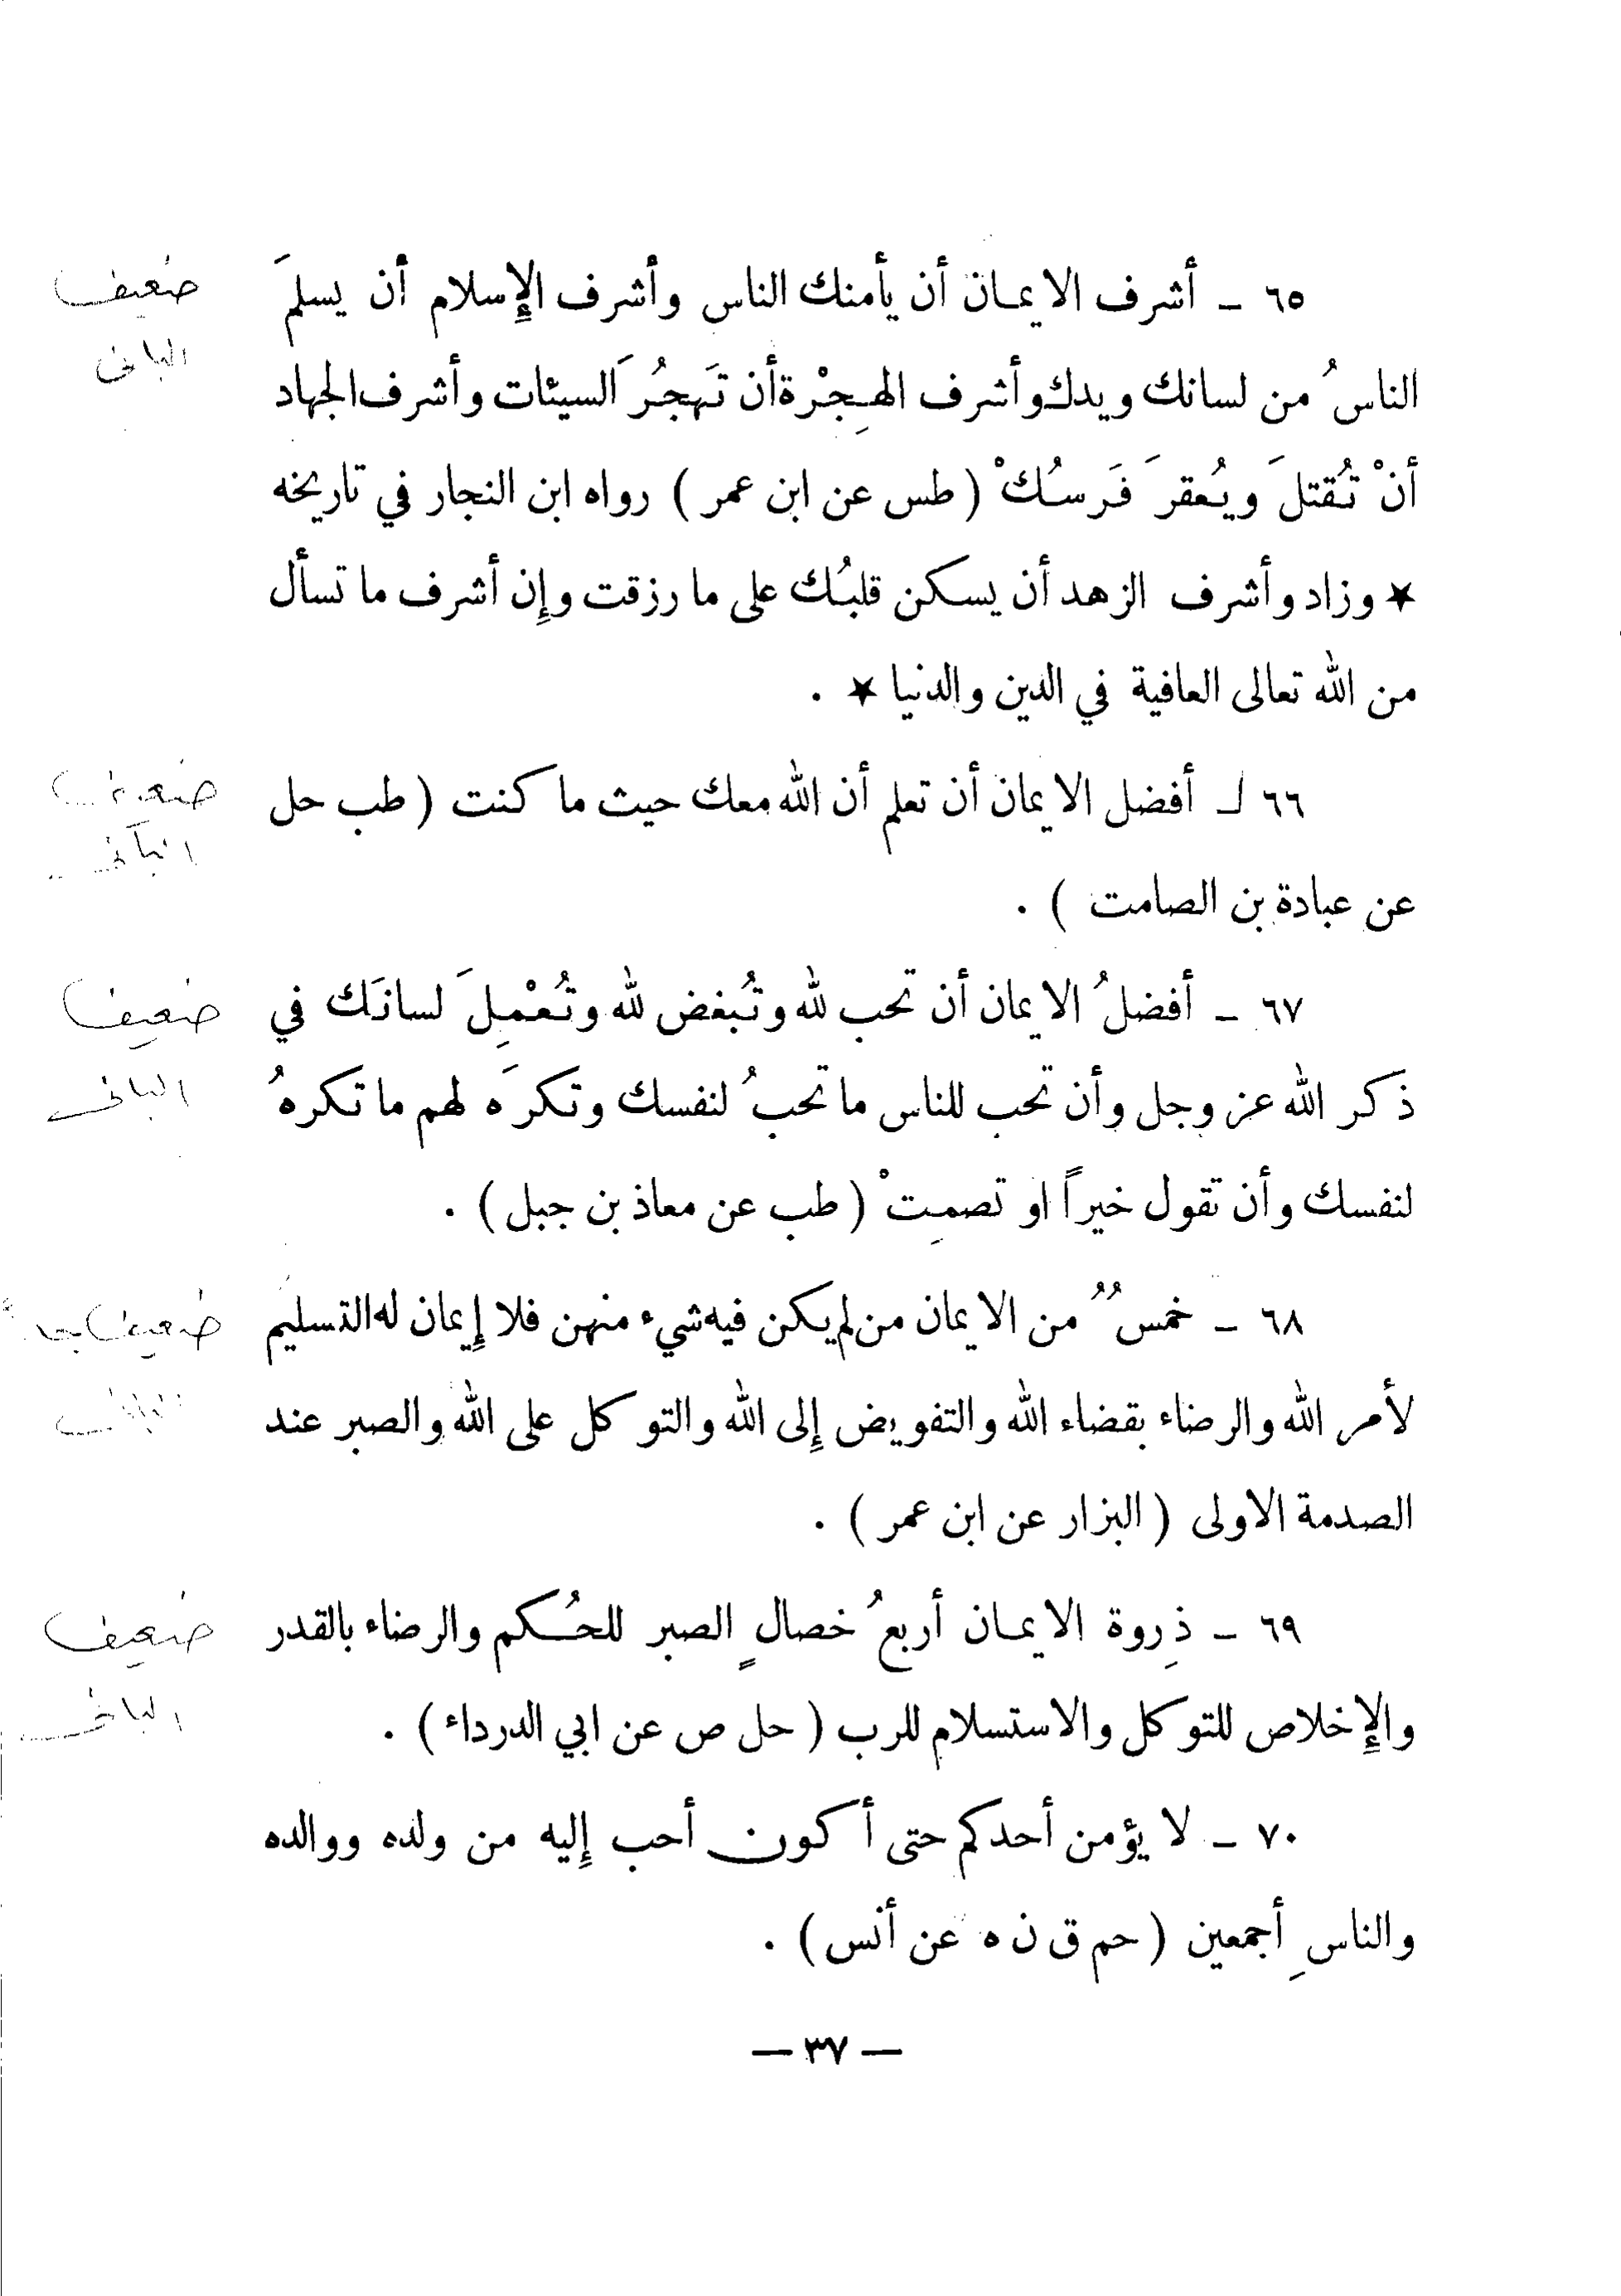 ٦٥ ـ أشرف الايمـان أن يأمنك الناس وأشرف الإِسلام أن يسلمَ
ضعيف
الناسُ من لسانك ويدك وأشرف الهِجْرة أن تَهجُرَ السيئات وأشرف الجهاد
البانى
أنْ تُقتلَ ويُعقرَ فَرسُكْ ( طس عن ابن عمر ) رواه ابن النجار في تاريخه
★ وزاد وأشرف الزهد أن يسكن قلبُك على ما رزقت وإِن أشرف ما تسأل
من الله تعالى العافية في الدين والدنيا ★ .
٦٦ ـ أفضل الايمان أن تعلم أن الله معك حيث ما كنت ( طب حل
ضعيف
البانى
عن عبادة بن الصامت ) .
٦٧ ـ أفضلُ الايمان أن تحب لله وتُبغض لله وتُعْمِلَ لسانَك في
ضعيف
ذكر الله عز وجل وأن تحب للناس ما تحبُ لنفسك وتكرَه لهم ما تكرهُ
البانى
لنفسك وأن تقول خيراً او تصمِتْ ( طب عن معاذ بن جبل ) .
٦٨ ـ خمسٌ من الايمان من لم يكن فيه شيء منهن فلا إِيمان له التسليم
ضعيف جداً
لأمر الله والرضاء بقضاء الله والتفويض إِلى الله والتوكل على الله والصبر عند
البانى
الصدمة الاولى ( البزار عن ابن عمر ) .
٦٩ ـ ذِروة الايمـان أربعُ خصالٍ الصبر للحُكم والرضاء بالقدر
ضعيف
والإِخلاص للتوكل والاستسلام للرب ( حل ص عن ابي الدرداء ) .
البانى
٧٠ ـ لا يؤمن أحدكم حتى أكون أحب إِليه من ولده ووالده
والناسِ أجمعين ( حم ق ن ه عن أنس ) .
— ٣٧ —